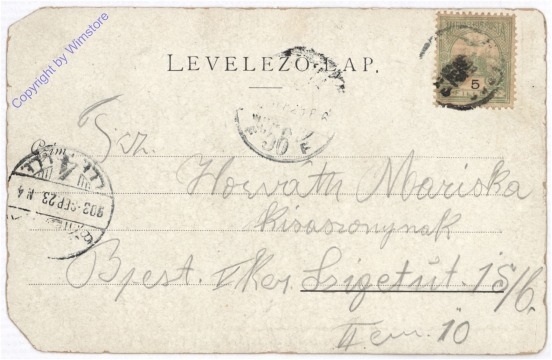 Copyright by Winstore
LEVELEZŐ-LAP.
5
50
903 SEP 23
Horváth Mariska
kisasszonynak
Bpest. I ker. Szigetút. 18/6.
II em. 10